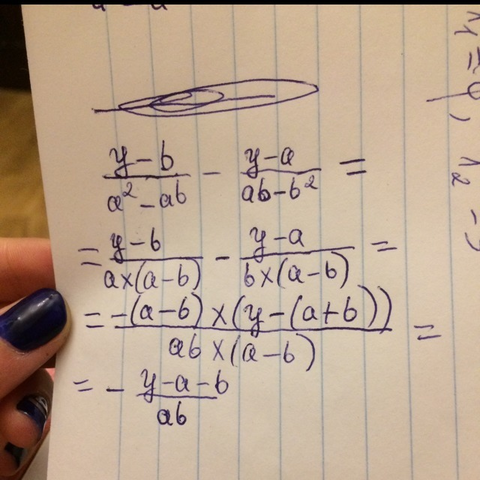 (y-b)/(a²-ab) - (y-a)/(ab-b²) =
= (y-b)/(a×(a-b)) - (y-a)/(b×(a-b)) =
= (-(a-b)×(y-(a+b)))/(ab×(a-b)) =
= - (y-a-b)/(ab)